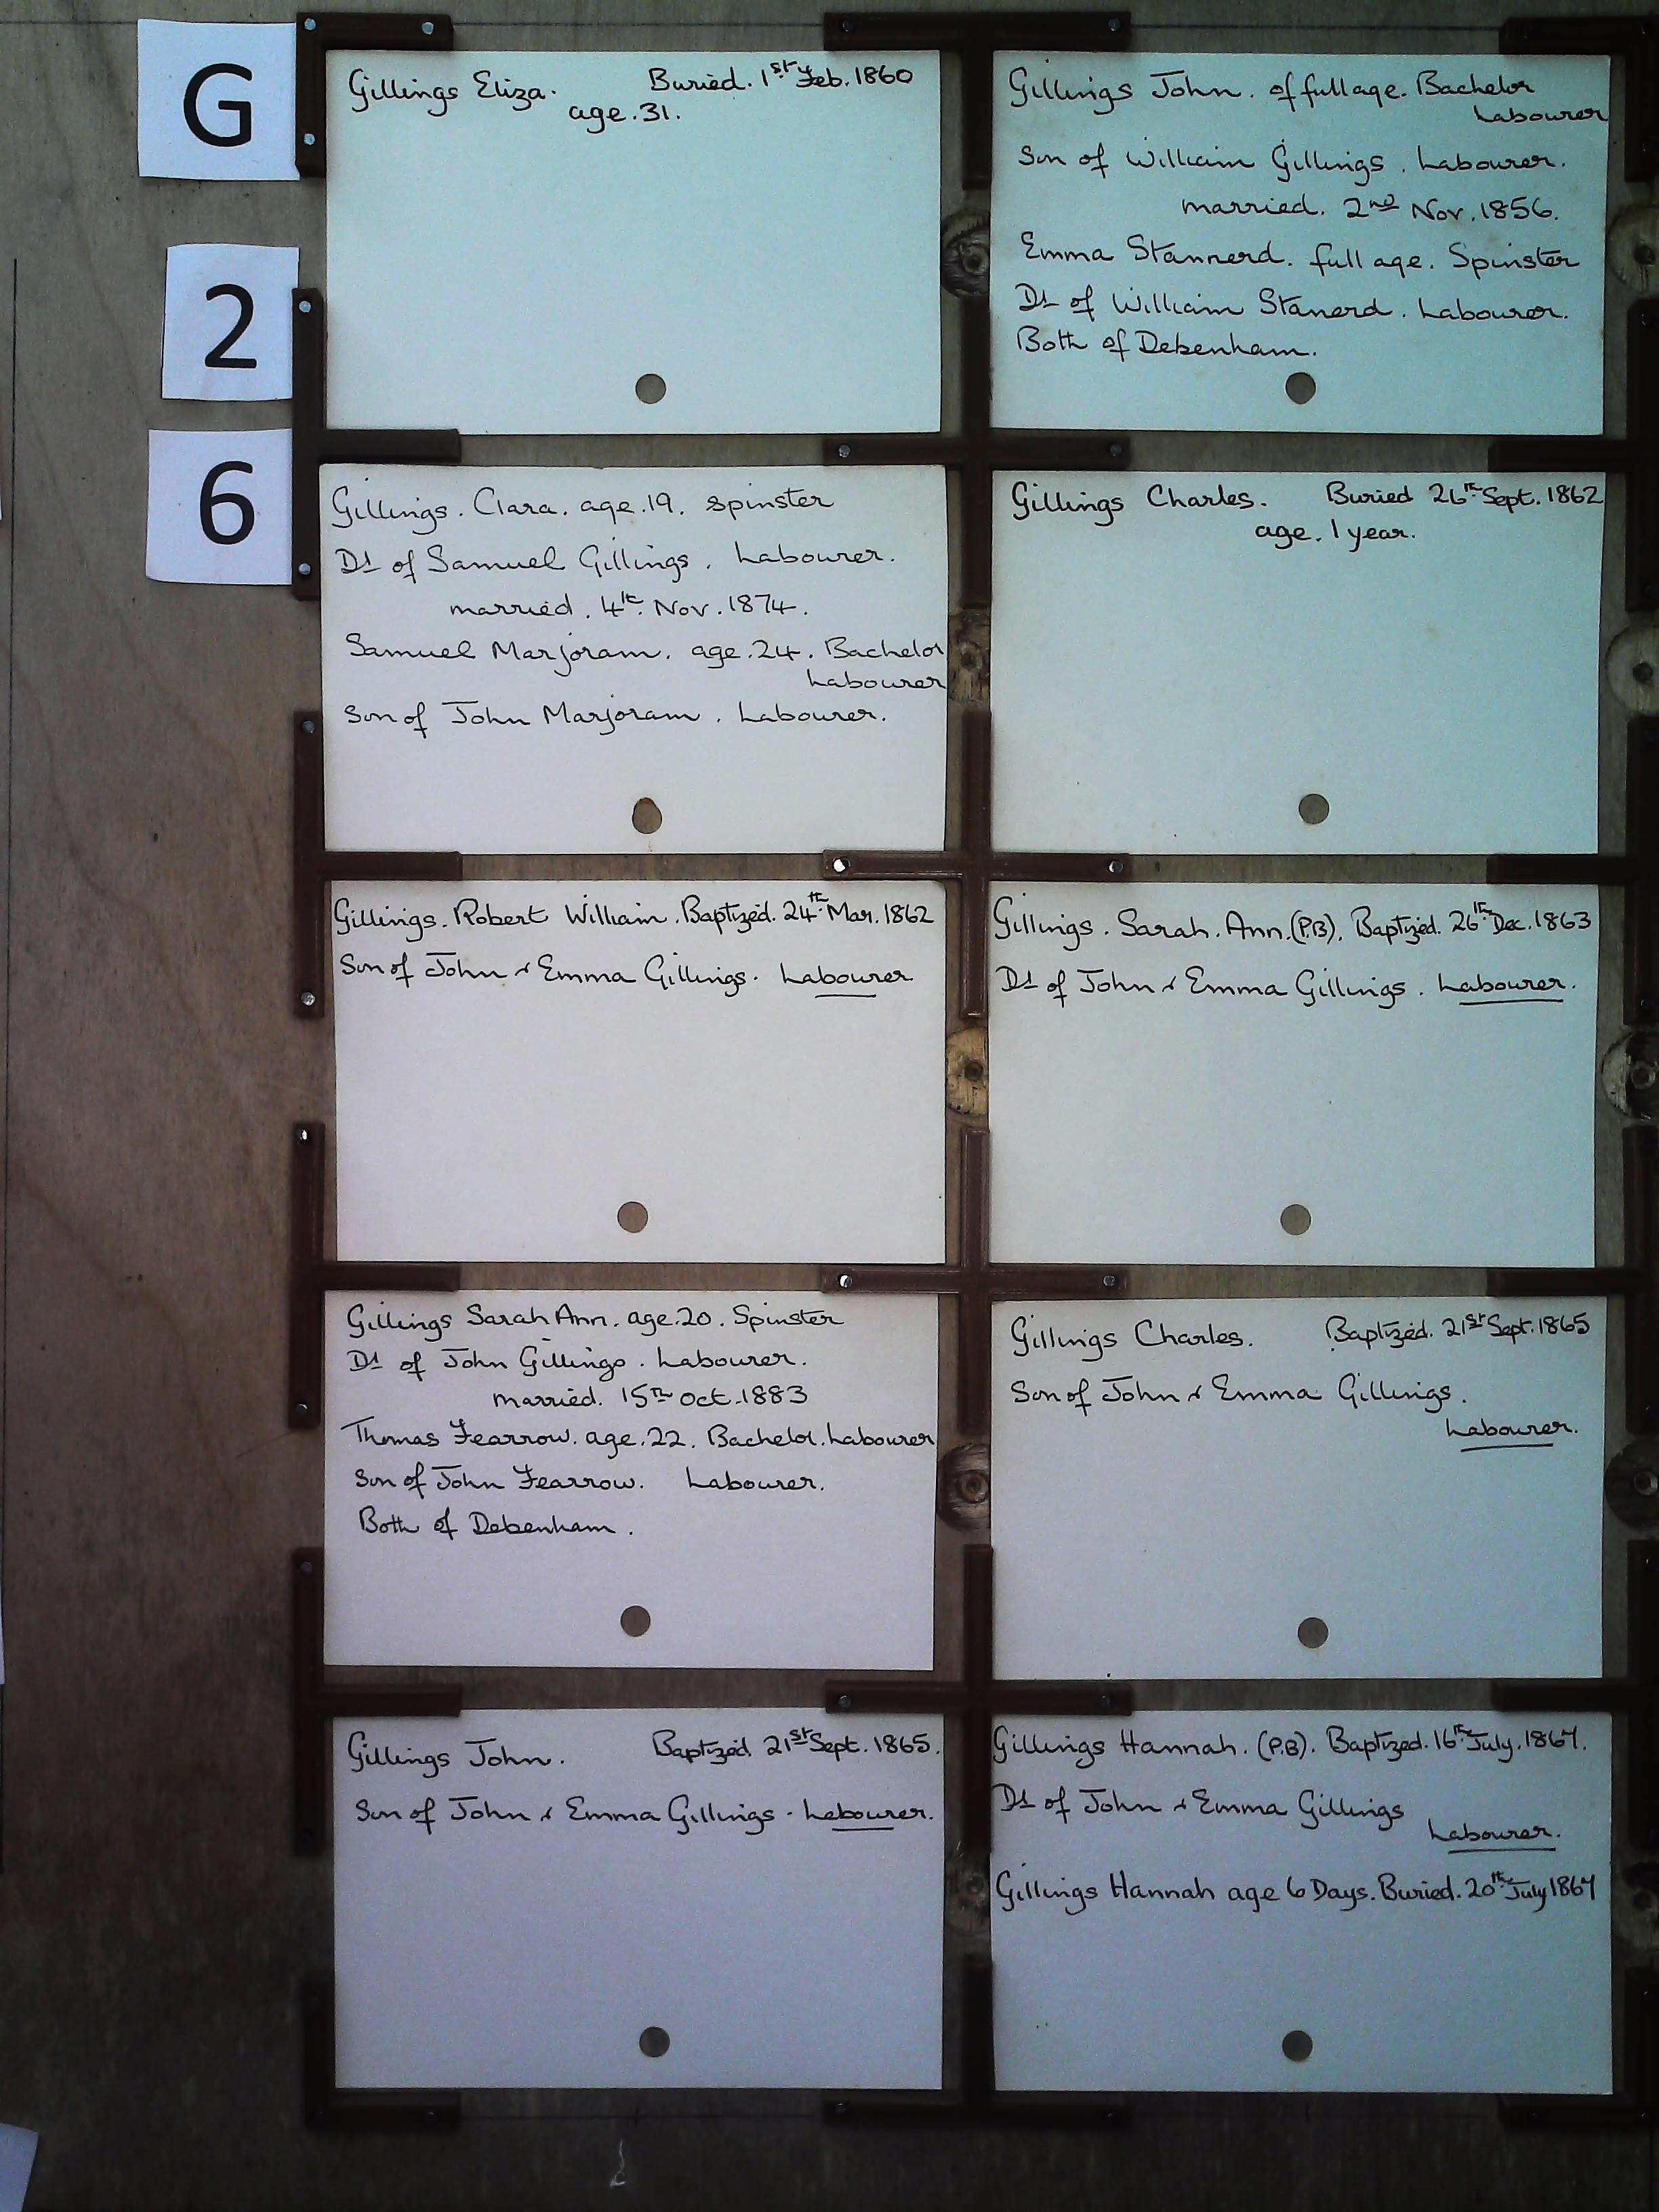 G
2
6
Gillings Eliza. Buried. 1st Feb. 1860
age. 31.
Gillings John. of full age. Bachelor
Labourer
Son of William Gillings. Labourer.
married. 2nd Nov. 1856.
Emma Stannerd. full age. Spinster
Dt of William Stanerd. Labourer.
Both of Debenham.
Gillings. Clara. age. 19. spinster
Dt of Samuel Gillings. Labourer.
married. 4th Nov. 1874.
Samuel Marjoram. age. 24. Bachelor
Labourer
Son of John Marjoram. Labourer.
Gillings Charles. Buried 26th Sept. 1862
age. 1 year.
Gillings. Robert William. Baptized. 24th Mar. 1862
Son of John & Emma Gillings. Labourer
Gillings. Sarah. Ann. (P.B). Baptized. 26th Dec. 1863
Dt of John & Emma Gillings. Labourer.
Gillings Sarah Ann. age. 20. Spinster
Dt of John Gillings. Labourer.
married. 15th Oct. 1883
Thomas Fearrow. age. 22. Bachelor. Labourer
Son of John Fearrow. Labourer.
Both of Debenham.
Gillings Charles. Baptized. 21st Sept. 1865
Son of John & Emma Gillings.
Labourer.
Gillings John. Baptized 21st Sept. 1865.
Son of John & Emma Gillings. Labourer.
Gillings Hannah. (P.B). Baptized. 16th July. 1867.
Dt of John & Emma Gillings
Labourer.
Gillings Hannah age 6 Days. Buried. 20th July 1867